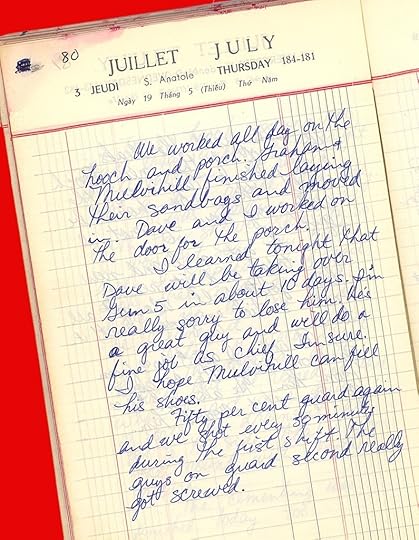 80
JUILLET JULY
3 JEUDI S. Anatole THURSDAY 184-181
Ngày 19 Tháng 5 (Thiếu) Thứ Năm
We worked all day on the
hooch and porch. Graham &
Mulvihill finished laying
their sandbags and moved
in. Dave and I worked on
the door for the porch.
I learned tonight that
Dave will be taking over
Gun 5 in about 10 days. I'm
really sorry to lose him. He's
a great guy and will do a
fine job as Chief I'm sure.
I hope Mulvihill can fill
his shoes.
Fifty per cent guard again
and we shot every 30 minutes
during the first shift. The
guys on guard second really
got screwed.